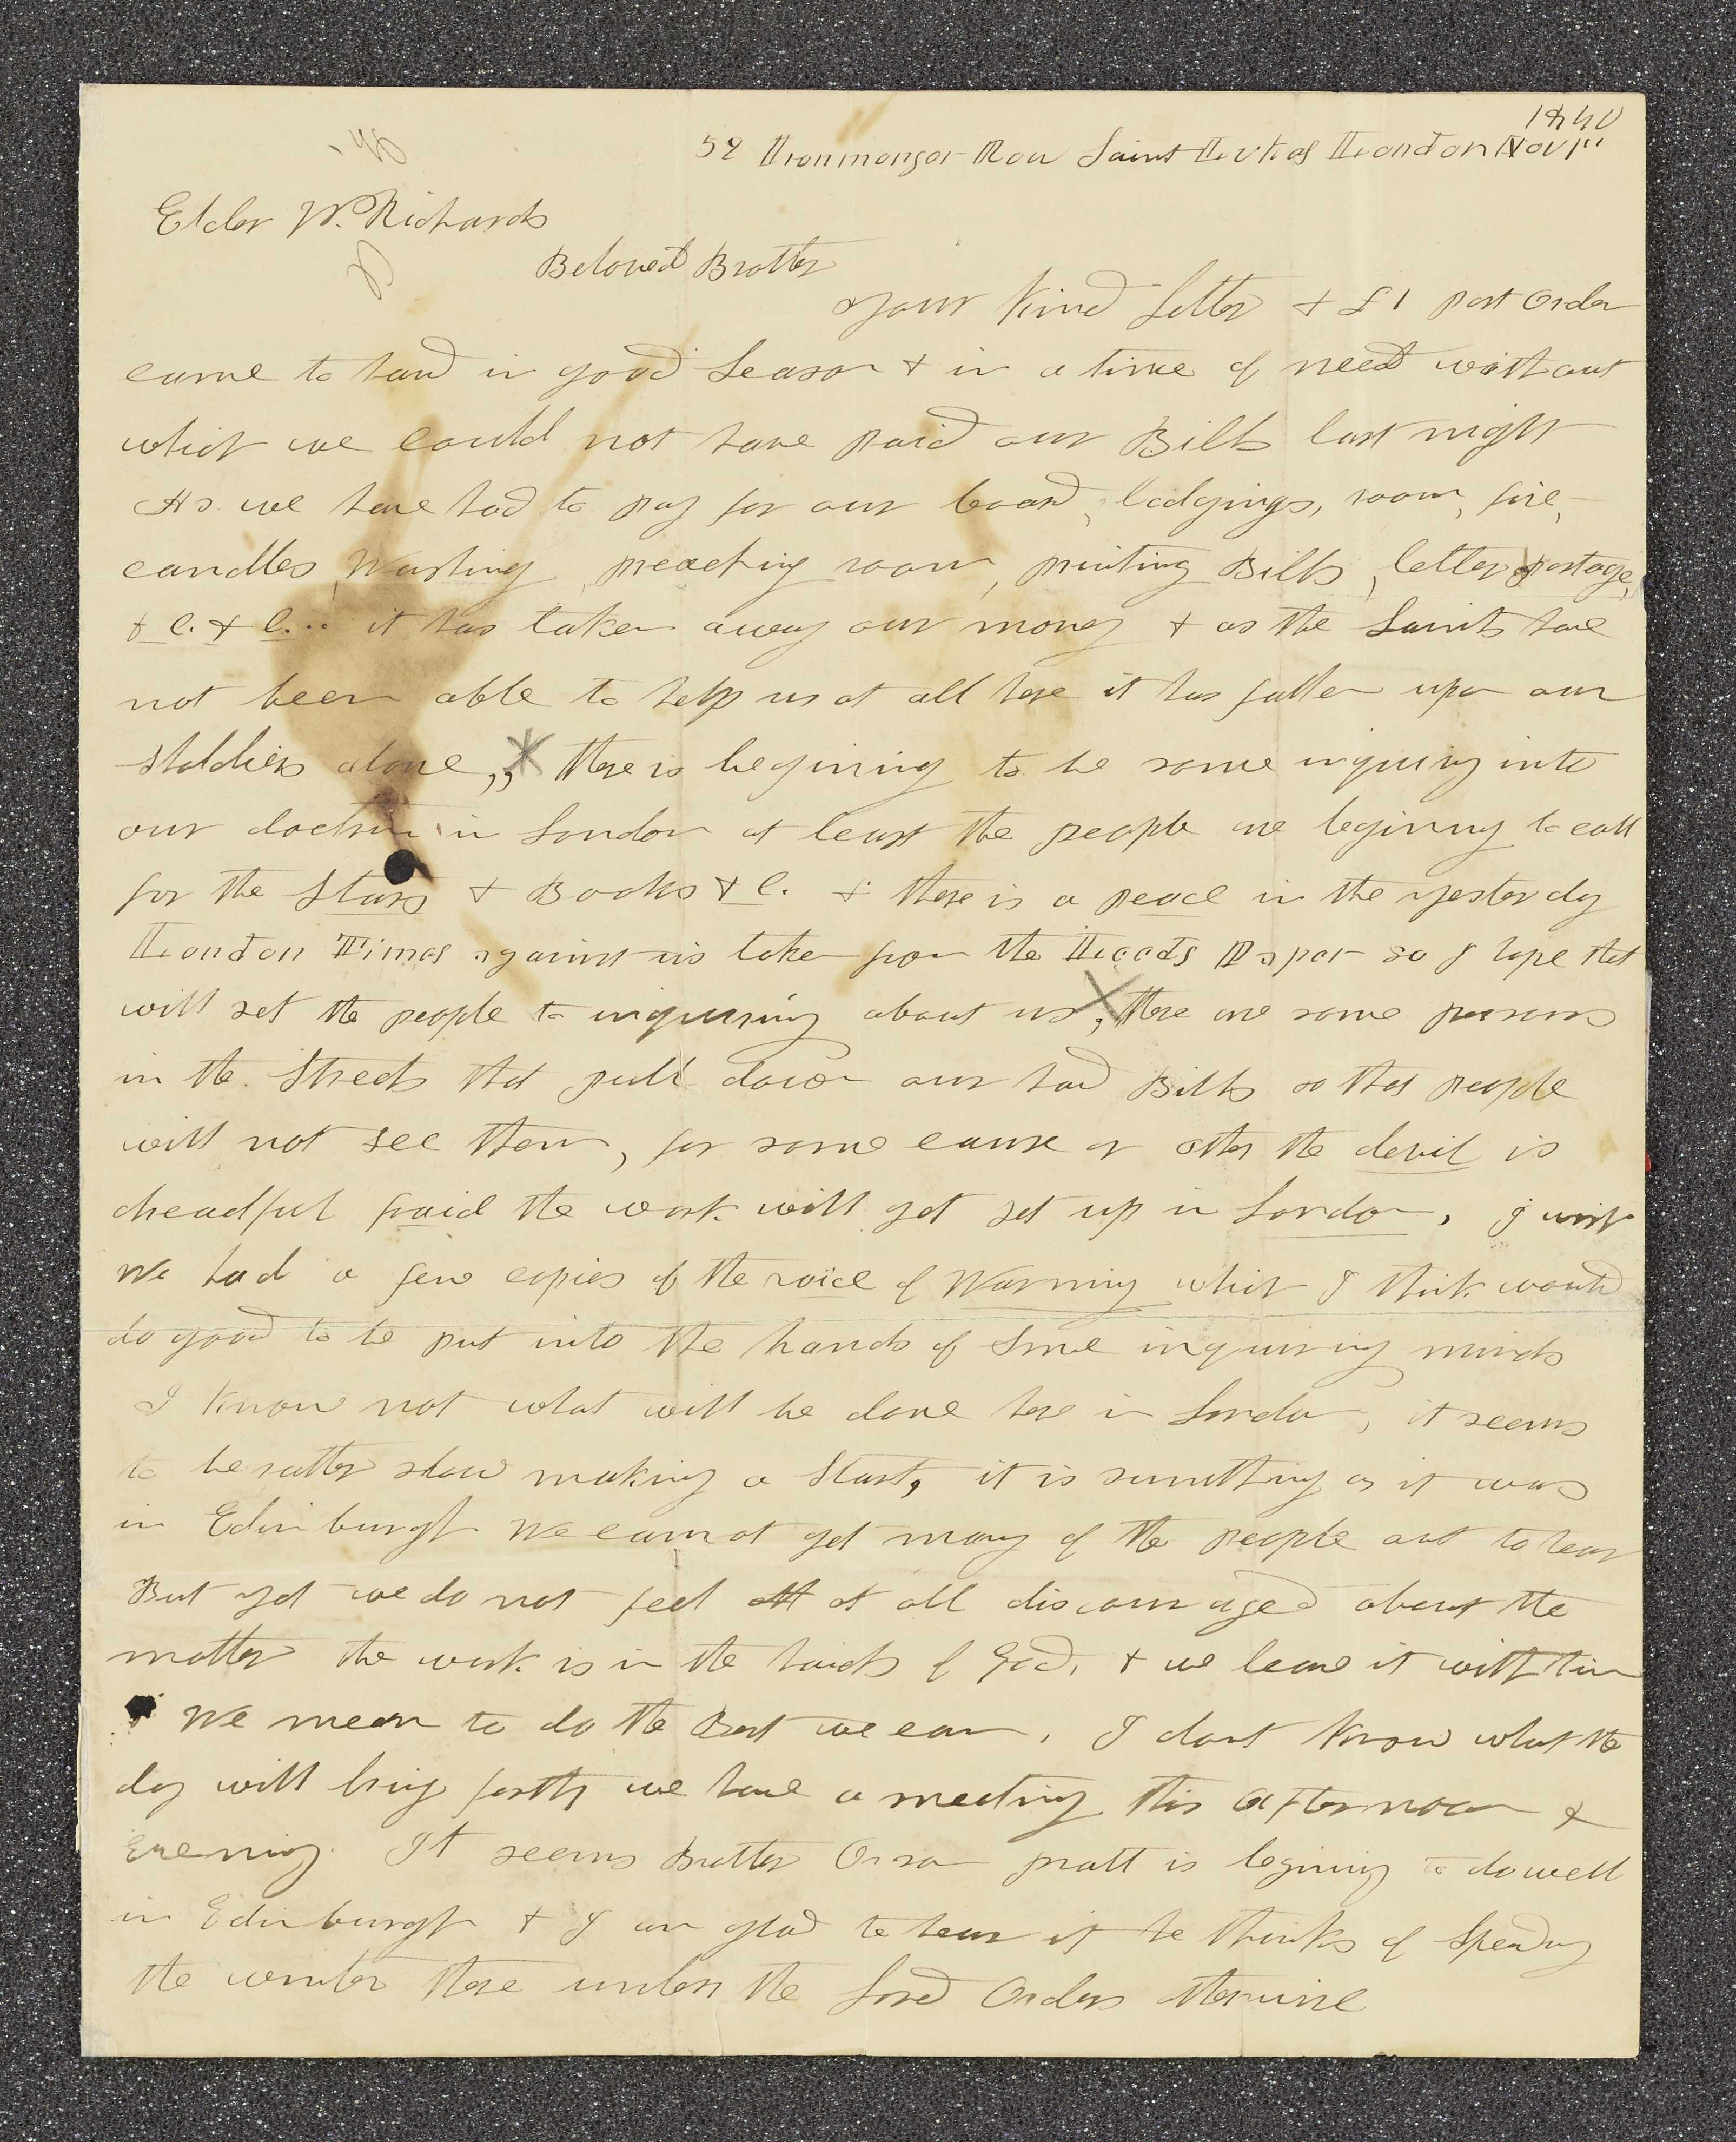 1840
52 Ironmonger Row Saint Lukes London Nov 1st
Elder W. Richards
Beloved Brother
Your kind letter & £1 post Order
came to hand in good Season & in a time of need without
which we could not have paid our Bills last night
As we have had to pay for our board, lodgings, room, fire,
candles, Washing, preaching room, printing Bills, letter postage,
& c. & c... it has taken away our money & as the Saints have
not been able to help us at all here it has fallen upon our
sholdiers alone,, there is begining to be some inquiry into
our doctrin in London at least the people are begining to call
for the Stars & Books & c. & there is a peace in the yesterday
London Times against us taken from the Leeds Paper so I hope that
will set the people to inquiring about us, there are some persons
in the Streets that pull down our hand Bills so that people
will not see them, for some cause or other the devil is
dreadful fraid the work will get set up in London, I wish
We had a few copies of the voice of Warning which I think would
do good to be put into the hands of Some inquiring minds
I know not what will be done here in London, it seems
to be rather slow making a Start, it is sumthing as it was
in Edinburgh We cannot get many of the people out to hear
But yet we do not feel at all discouraged about the
matter the work is in the hands of God, & we leave it with him
We mean to do the Best we can, I dont know what the
day will bring forth, we have a meeting this afternoon &
Evening. It seems Brother Orson pratt is begining to do well
in Edinburgh & I am glad to hear it he thinks of Spending
the winter there unless the Lord Orders otherwise